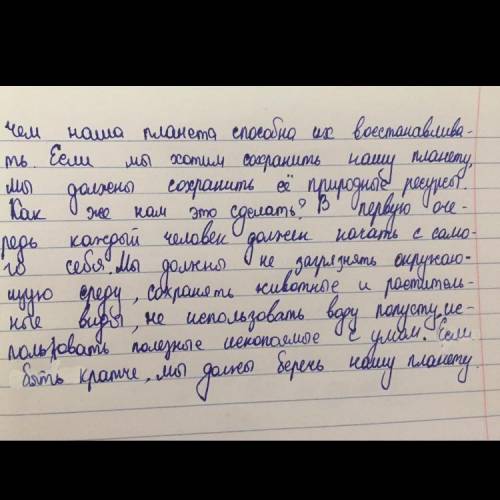 чем наша планета способна их восстанавлива-
ть. Если мы хотим сохранить нашу планету,
мы должны сохранить её природные ресурсы.
Как же нам это сделать? В первую оче-
редь каждый человек должен начать с само-
го себя. Мы должны не загрязнять окружаю-
щую среду, сохранять животные и раститель-
ные виды, не использовать воду попусту, ис-
пользовать полезные ископаемые с умом. Если
быть кратче, мы должы беречь нашу планету.